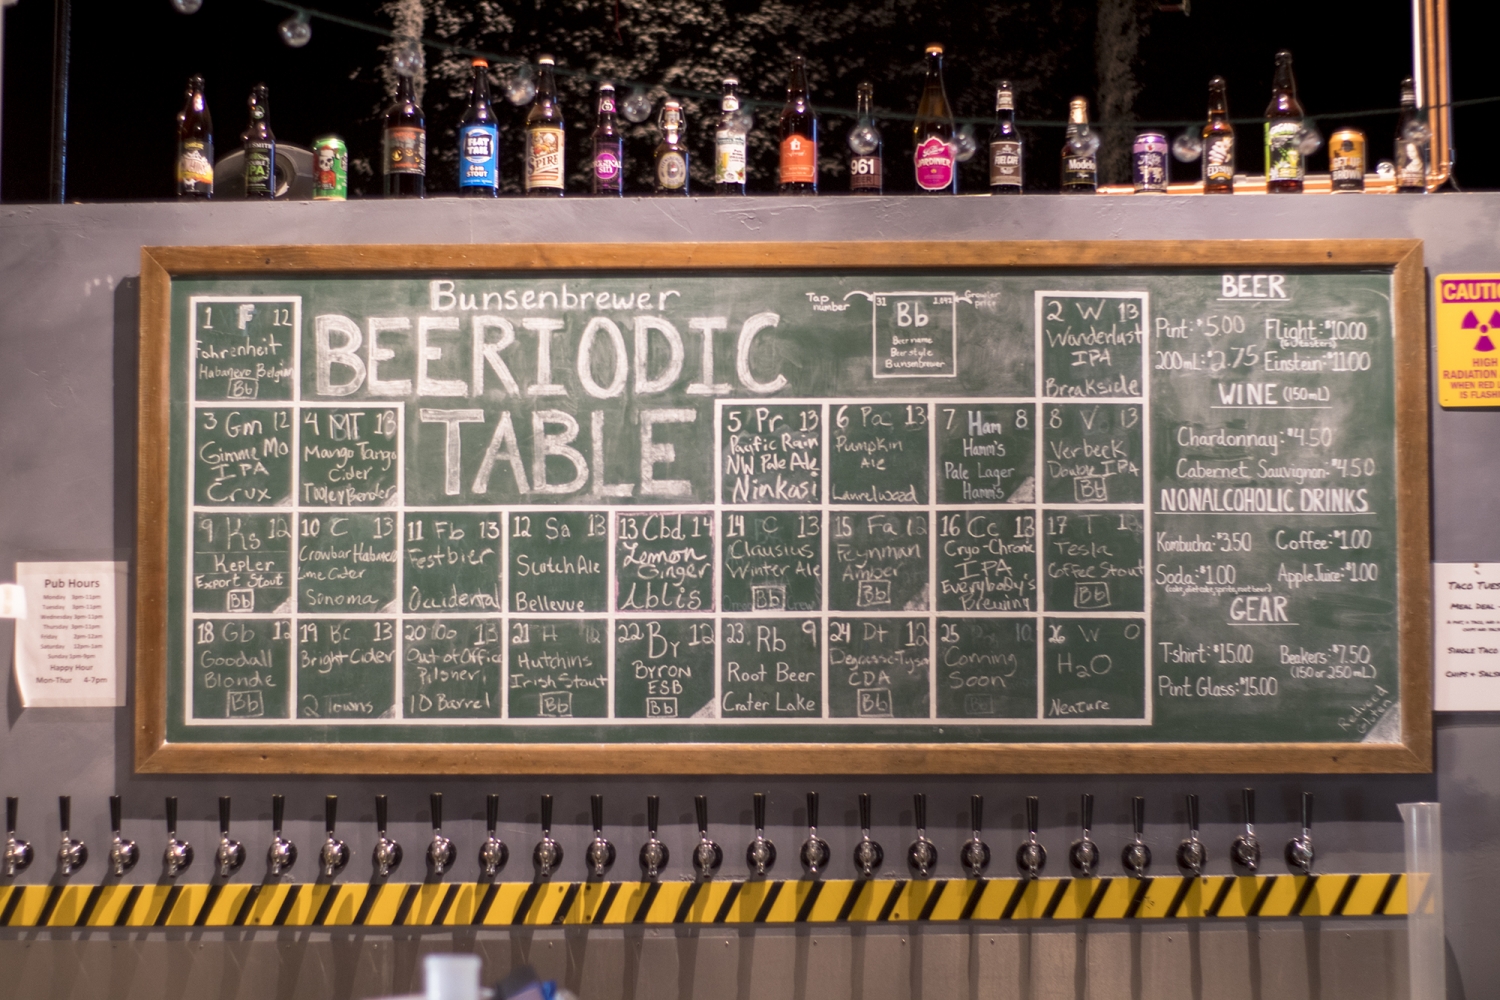 FLAT
TAIL
STOUT
SPIRE
961
FUEL CAFE
Bunsenbrewer
BEERIODIC
TABLE
Tap
number
31
Bb
Beer name
Beer style
Bunsenbrewer
Growler
price
1 F 12
Fahrenheit
Habanero Belgian
Bb
2 W 13
Wanderlust
IPA
Breakside
3 Gm 12
Gimme Mo
IPA
Crux
4 MT 13
Mango Tango
Cider
TooleyBender
5 Pr 13
Pacific Rain
NW Pale Ale
Ninkasi
6 Pac 13
Pumpkin
Ale
Laurelwood
7 Ham 8
Hamm's
Pale Lager
Hamm's
8 V 13
Verbeek
Double IPA
Bb
9 Ks 12
Kepler
Export Stout
Bb
10 C 13
Crowbar Habanero
Lime Cider
Sonoma
11 Fb 13
Festbier
Occidental
12 Sa 13
Scotch Ale
Bellevue
13 Cbd 14
Lemon
Ginger
Ablis
14 C 13
Clausius
Winter Ale
Bb
15 Fa 12
Feynman
Amber
Bb
16 Cc 13
Cryo-Chronic
IPA
Everybody's
Brewing
17 T
Tesla
Coffee Stout
Bb
18 Gb 12
Goodall
Blonde
Bb
19 Bc 13
Bright Cider
2 Towns
20 Oo 13
Out of Office
Pilsner
10 Barrel
21 H
Hutchins
Irish Stout
Bb
22 By 12
BYRON
ESB
Bb
23 Rb 9
Root Beer
Crater Lake
24 Dt 12
Degrasse-Tyson
CDA
Bb
25
Coming
Soon
26 W 0
H2O
Neature
BEER
Pint: $5.00 Flight: $10.00
(6 tasters)
200mL: $2.75 Einstein: $11.00
WINE (150mL)
Chardonnay: $4.50
Cabernet Sauvignon: $4.50
NONALCOHOLIC DRINKS
Kombucha: $3.50 Coffee: $1.00
Soda: $1.00 Apple Juice: $1.00
(coke, diet coke, sprite, root beer)
GEAR
T-shirt: $15.00 Beakers: $7.50
(150 or 250mL)
Pint Glass: $15.00
Reduced
Gluten
CAUTI
HIGH
RADIATION
WHEN RED
IS FLASHI
Pub Hours
Monday 3pm-11pm
Tuesday 3pm-11pm
Wednesday 3pm-11pm
Thursday 3pm-11pm
Friday 2pm-12am
Saturday 12pm-1am
Sunday 1pm-9pm
Happy Hour
Mon-Thur 4-7pm
TACO TUES
MEAL DEAL
SINGLE TACO
CHIPS & SALSA